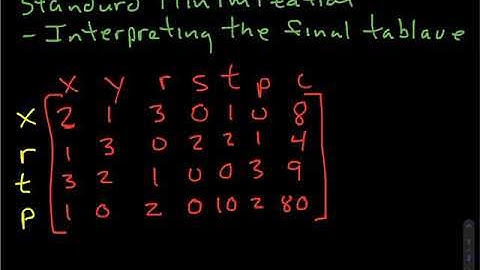 Standard Minimization
- Interpreting the final tablaue
x y r s t p c
x 2 1 3 0 1 0 8
r 1 3 0 2 2 1 4
t 3 2 1 0 0 3 9
p 1 0 2 0 10 2 80